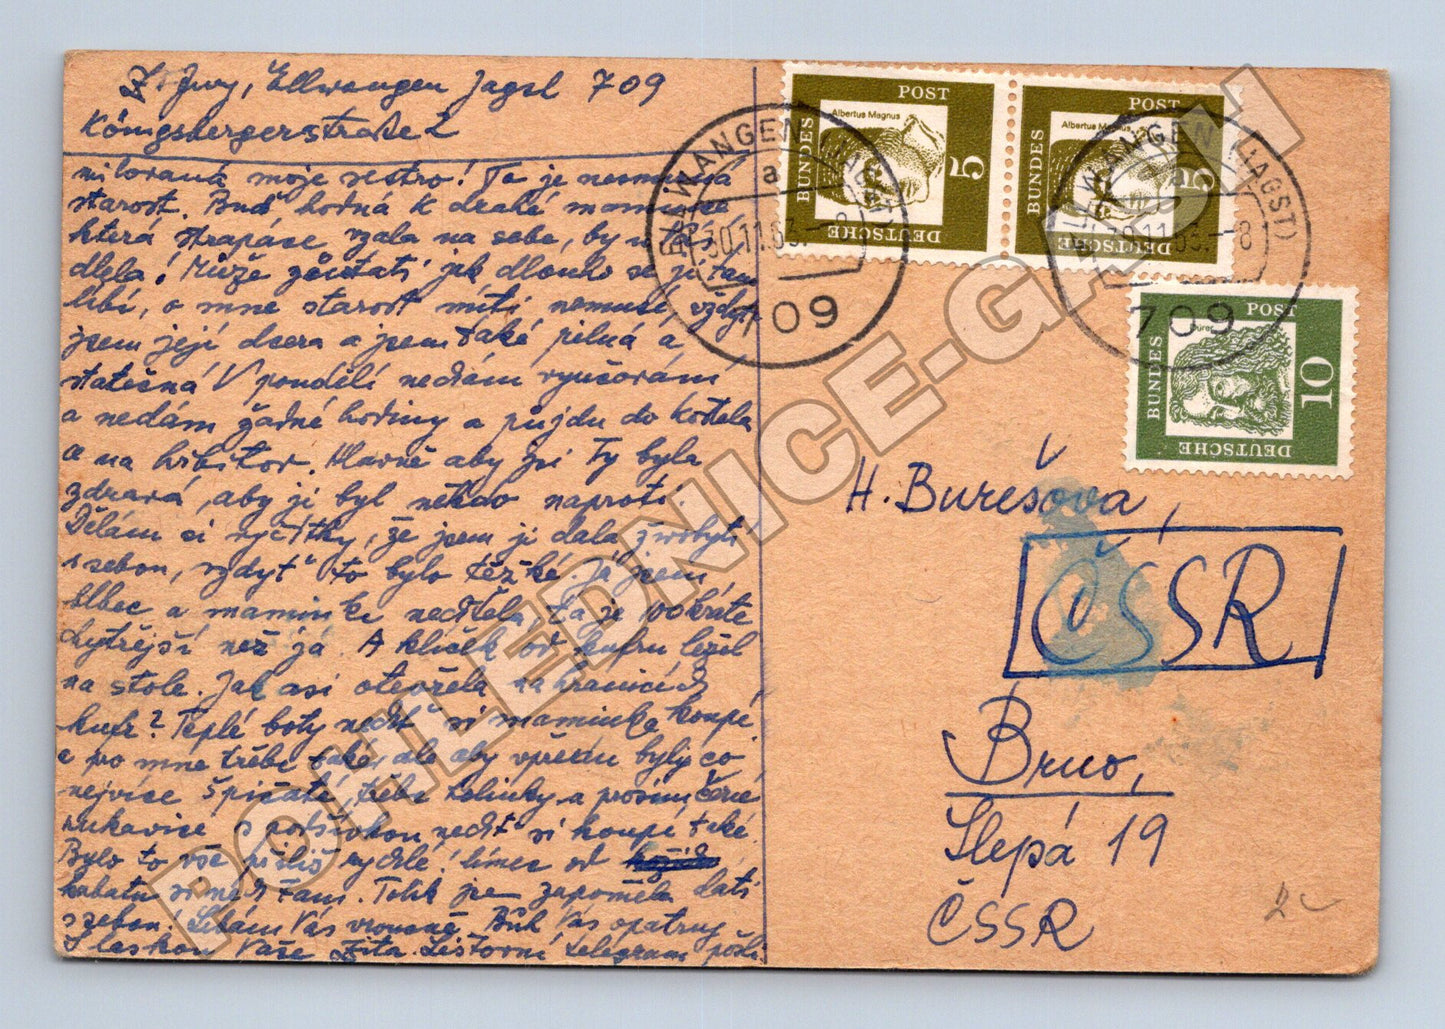 Ellwangen Jagst 709
Königsbergerstraße 2
milovaná moje sestro! To je nesmírná
starost. Buď hodná k drahé mamince
která strapáce vzala na sebe, by
dlela! Může zůstati jak dlouho se jí tam
líbí, o mne starost míti nemusí, vždyť
jsem její dcera a jsem také pilná a
statečná! V pondělí nedám vyučování
a nedám žádné hodiny a půjdu do kostela
a na hřbitov. Hlavně aby jsi Ty byla
zdravá, aby jí byl někdo naproti.
Dělám si výčitky, že jsem jí dala
s sebou, vždyť to bylo těžké. Já jsem
blbec a maminka neděla, ta je 100 kráte
chytřejší než já. A klíček od kufru ležel
na stole. Jak asi otevřela na hranicích
kufr? Teplé boty nechť si maminka koupí,
a pro mne třeba také, dle aby vpředu byly co
nejvíce špičaté, třeba a prosím černé
rukavice s podšívkou nechť si koupí také.
Bylo to vše příliš rychlé! límec od
kabátu Tam. Tolik jsem zapoměla dáti
s sebou! Líbám Vás vroucně. Bůh Vás opatruj
S láskou Vaše Zita. telegram pošli.
BUNDES
DEUTSCHE
POST
5
Albertus Magnus
BUNDES
DEUTSCHE
POST
5
Albertus Magnus
BUNDES
DEUTSCHE
POST
10
Dürer
ELLWANGEN (JAGST)
a
30.11.63.-8
709
ELLWANGEN (JAGST)
a
30.11.63.-8
709
H. Burešova,
ČSSR
Brno,
Slepá 19
ČSSR
POHLEDNICE-GASH